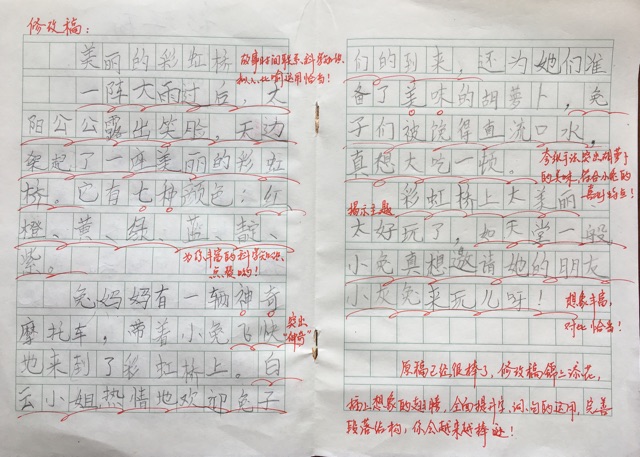 修改稿：
美丽的彩虹桥
一阵大雨过后，太
阳公公露出笑脸，天边
架起了一座美丽的彩虹
桥。它有七种颜色：红、
橙、黄、绿、蓝、靛、
紫。
为你丰富的科学知识
点赞哟！
兔妈妈有一辆神奇
摩托车，带着小兔飞快
突出
“神奇”
地来到了彩虹桥上。白
云小姐热情地欢迎兔子
们的到来，还为她们准
备了美味的胡萝卜，兔
子们被馋得直流口水，
真想大吃一顿。
彩虹桥上太美丽
揭示主题
太好玩了，如天堂一般，
小兔真想邀请她的朋友
小灰兔来玩儿呀！
想象丰富，
对比恰当！
原稿已经很棒了，修改稿锦上添花，
插上想象的翅膀，全面提升字、词、句的运用，完善
段落结构，你会越来越棒哒！